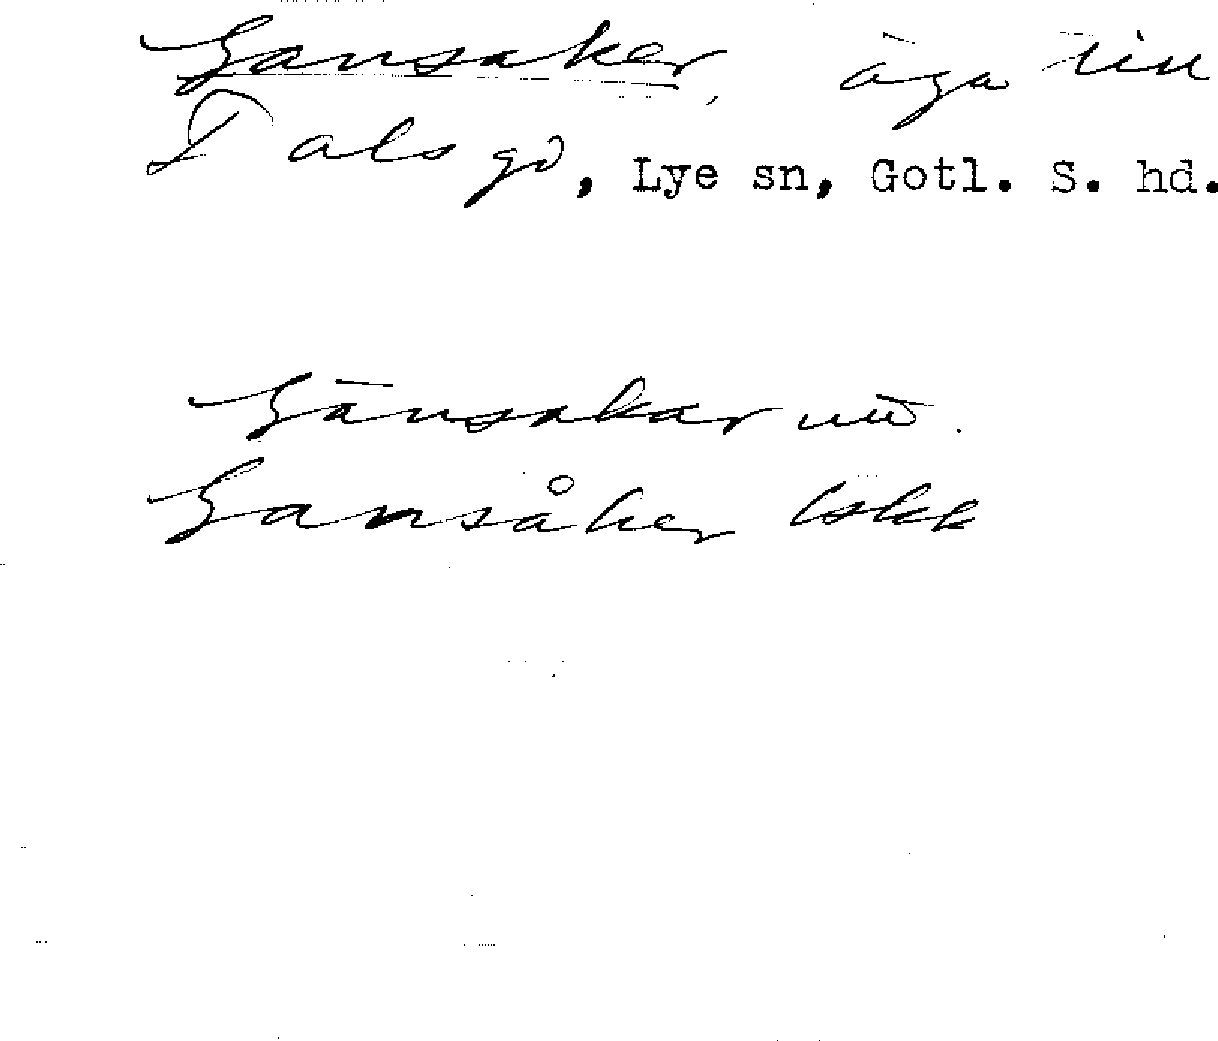 Gansaker, äga till
Tals gd, Lye sn, Gotl. S. hd.
Gānsakar utt.
Gansåker lskk